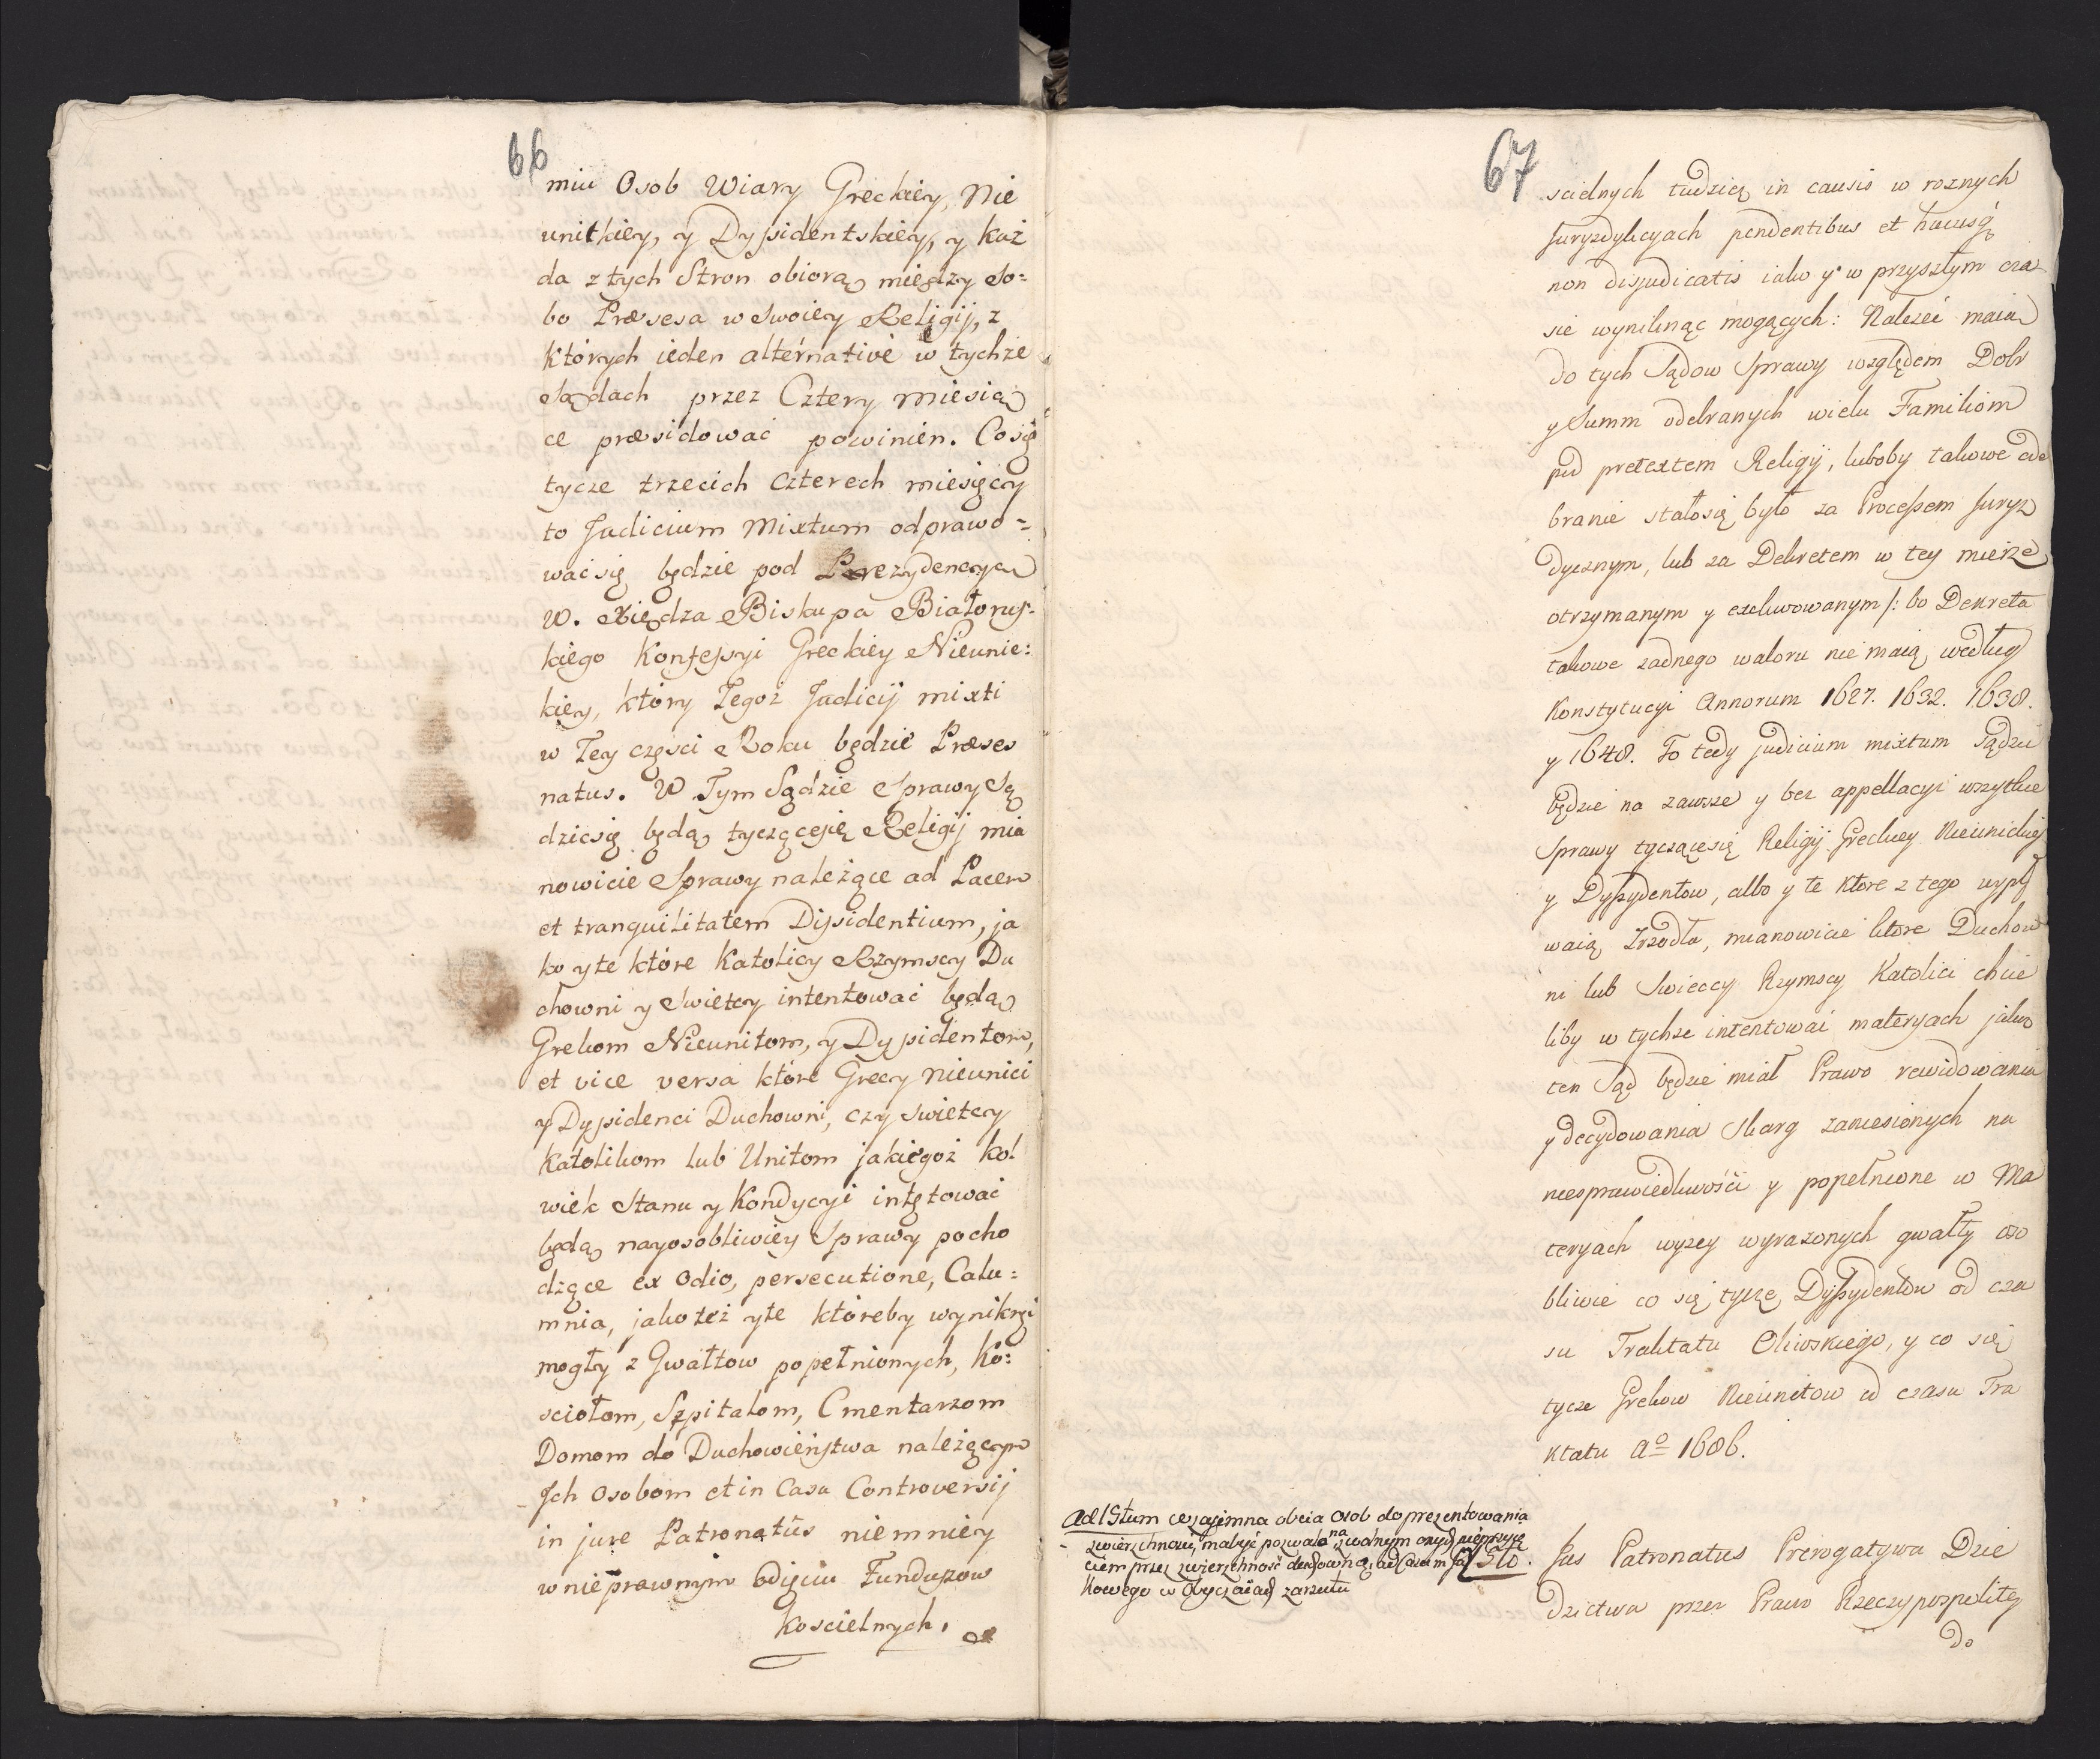 66
miu Osob Wiary Greckiey, Nie
unitkiey, y Dyssidentskiey, y każ
da z tych Stron obiorą między So=
bo Præsesa w Swoiey Religij, z
których ieden alternativè w tychże
Sądach przez Cztery miesią
ce præsidować powinien. Co się
tycze trzecich czterech miesięcy
to Judicium Mixtum odprawo=
wać się będzie pod Prezydencyą
W. Xiędza Biskupa Białorus=
kiego Konfessyi Greckiey Nieunic:
kiey, który Tegoż Judicij mixti
w Tey części Roku będzie Præses
natus. W Tym Sądzie Sprawy Są
dzić się będą tyczącesię Religij mia
nowicie Sprawy należące ad Pacem
et tranquilitatem Dissidentium, ja
ko y te które Katolicy Rzymscy Du
chowni y Swietcy intentować będą
Grekom Nieunitom, y Dyssidentom,
et vice versa które Grecy nieunici
y Dyssidenci Duchowni, czy swietcy
Katolikom lub Unitom jakiegoż kol
wiek Stanu y Kondycyi intętować
będą nayosobliwiey Sprawy pocho
dzące ex Odio, persecutione, Calu=
mnia, jako też y te któreby wyniknąć
mogły z Gwałtow popełnionych, Ko:
sciołom, Szpitalom, Cmentarzom
Domom do Duchowieństwa należącym
Jch osobom et in Casu Controversij
in jure Patronatûs niemniey
w nieprawnym Odięciu Funduszow
Koscielnych.
67
scielnych tudzież in causis w roznych
Juryzdykcyach pendentibus et hucusq
non disjudicatis iako y w przyszłym cza
sie wyniknąć mogących: Należeć maią
do tych Sądow Sprawy względem Dobr
y Summ odebranych wielu Familiom
pod pretextem Religij, lubo by takowe ode
branie stało się było za Processem Juryz
dycznym, lub za Dekretem w tey mierze
otrzymanym y exekwowanym /: bo Dekreta
takowe żadnego waloru nie maią według
Konstytucyi Annorum 1627. 1632. 1638.
y 1648. To tedy judicium mixtum Sądzić
będzie na zawsze y bez appellacyi wszytkie
Sprawy tyczącesię Religij Greckiey Nieunickiey
y Dyssydentow, albo y te ktore z tego wypły
waią Zrzodła, mianowicie ktore Duchow
ni lub Swieccy Rzymscy Katolici chcie
liby w tychże intentować materyach jako
ten Sąd będzie miał Prawo rewidowania
y decydowania Skarg zaniesionych na
niesprawiedliwości y popełnione w Ma
teryach wyżey wyrażonych gwałty oso
bliwie co się tycze Dyssydentow od cza
su Traktatu Oliwskiego, y co się
tycze Grekow Nieunitow od czasu Tra
ktatu Aº 1686.
Ad 1Stum wzajemna obcia Osob do prezentowania
zwierzchnosci, ma być pozwalo na zwalnym onych nieprzyię
ciem przez zwierzchność
kowego w Obyczaiach zarzutu
Jus Patronatus Prerogatywa Dzie
dzictwa przez Prawo Rzeczypospolitey
do